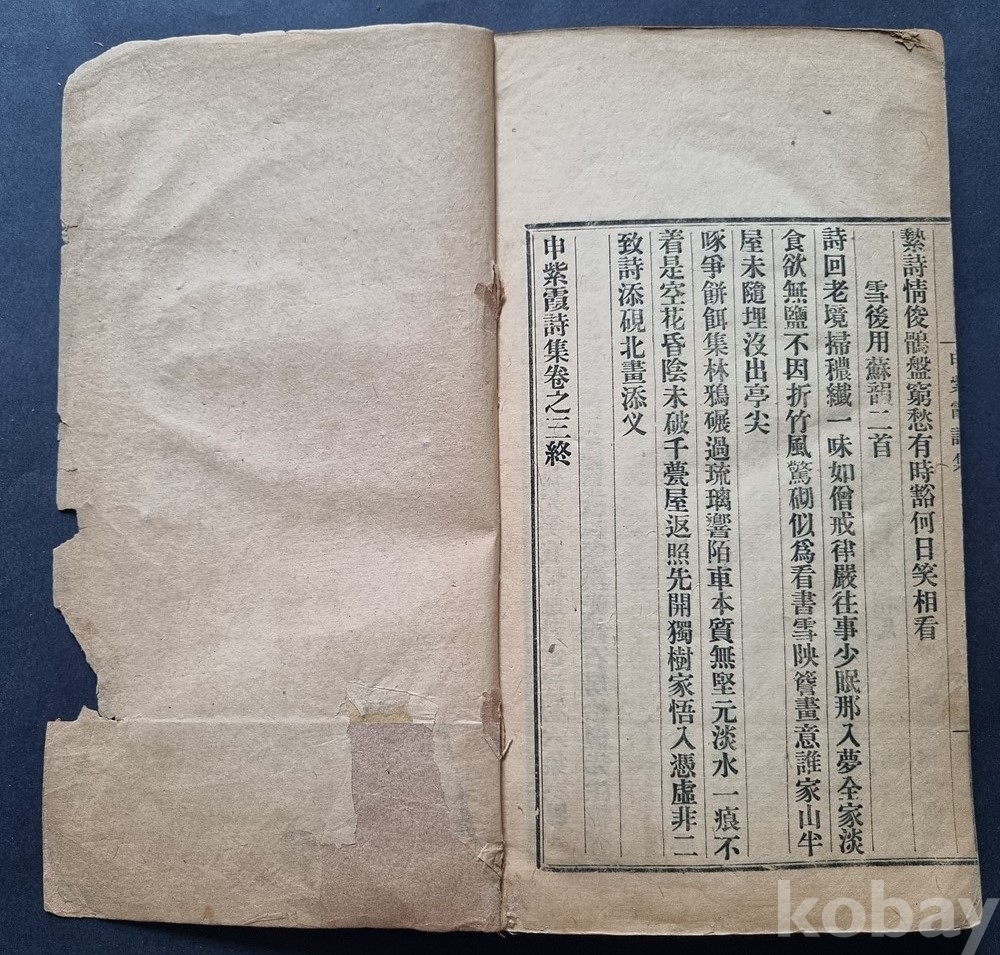 縶詩情俊鶻盤窮愁有時豁何日笑相看
雪後用蘇韻二首
詩回老境掃穠纖一味如僧戒律嚴往事少眠那入夢全家淡
食欲無鹽不因折竹風驚砌似爲看書雪映簷畫意誰家山半
屋未隨埋沒出亭尖
啄爭餠餌集林鴉碾過琉璃響陌車本質無堅元淡水一痕不
着是空花昏陰未破千甍屋返照先開獨樹家悟入憑虛非二
致詩添硯北畫添义
申紫霞詩集卷之三終
申紫霞詩集
kobay